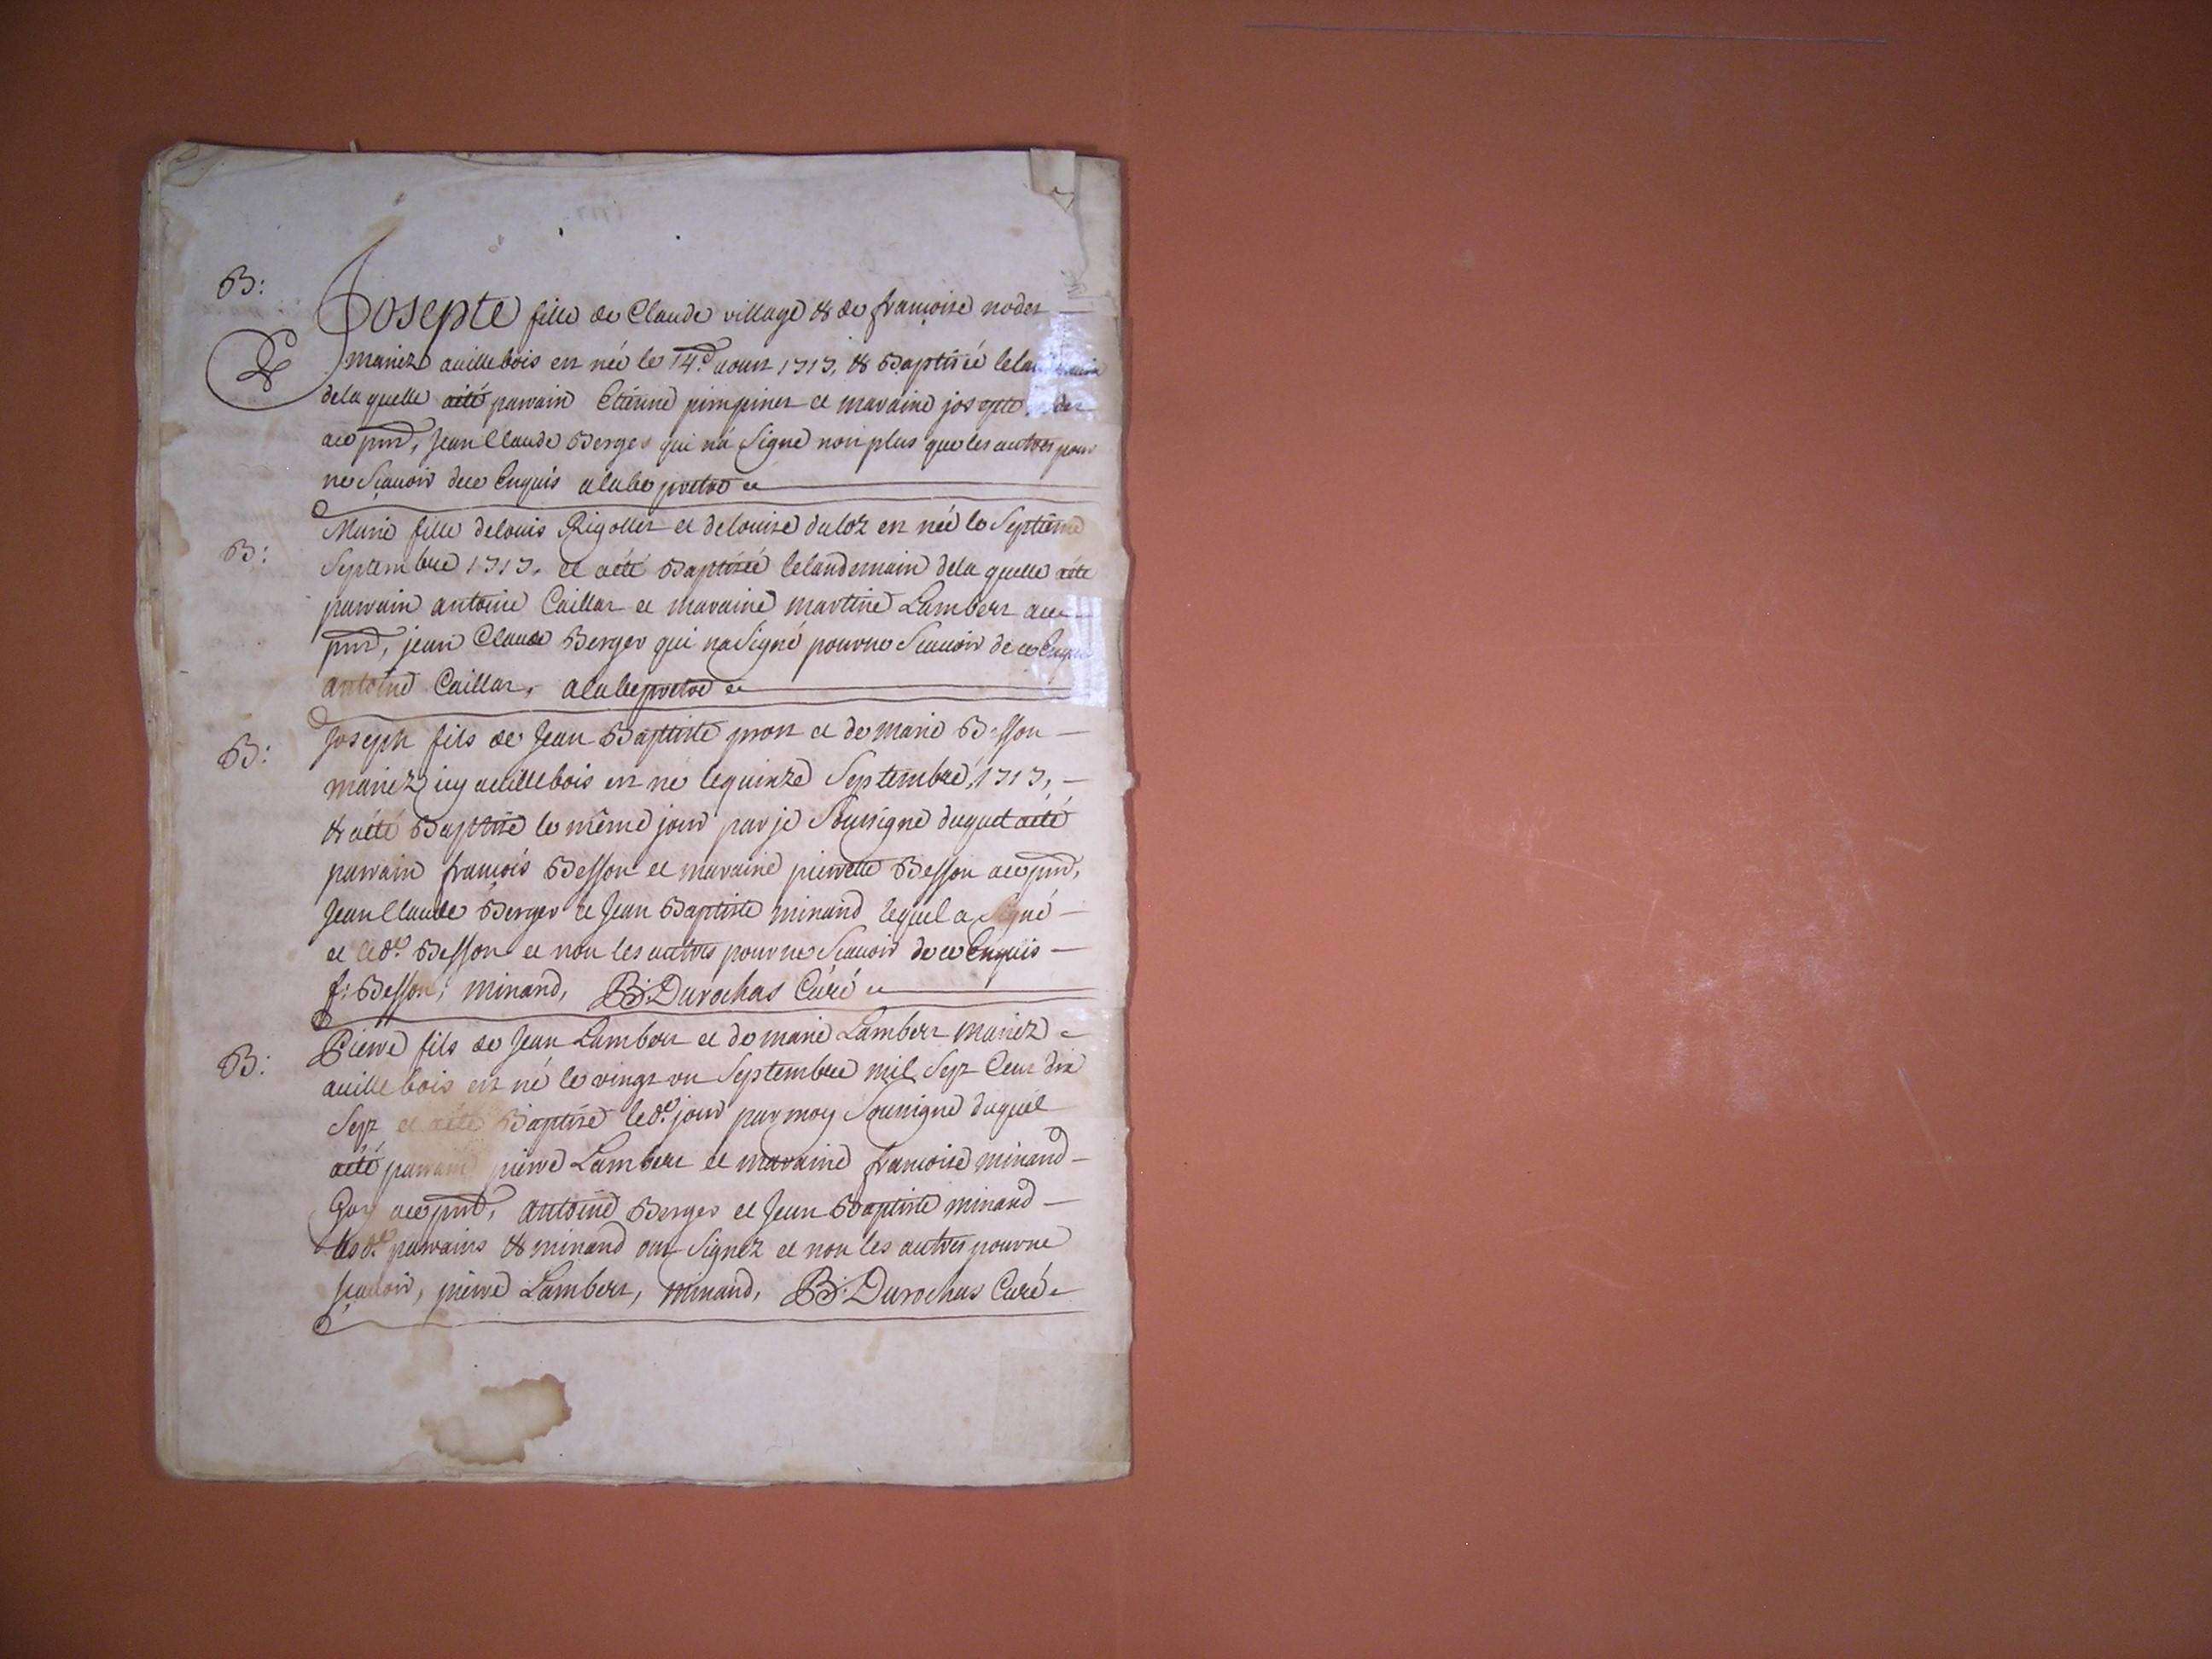 B:
Josepte fille de Claude village & de françoise nodet
mariez auillebois est née le 14.e aoust 1717. & Baptisée lelandemain
dela quelle aété parrain Etienne pimpinet et maraine josepte
ace pnt, Jean Claude Berger qui na Signé non plus que les autres pour
ne Sçauoir dece Enquis alabe pretre
B:
Marie fille delouis Rigollet et delouise daloz est née le Septieme
Septembre 1717. et aété Baptisée lelandemain dela quelle aété
parrain antoine Caillat et maraine martine Lambert ace
pnt, jean Claude Berger qui na Signé pour ne Scauoir de ce Enquis
antoine Caillat, alabe pretre
B:
Joseph fils de Jean Baptiste prost et de marie Besson
mariez icy auillebois est né lequinze Septembre, 1717,
& aété Baptisé le même jour par je Soussigné duquel aété
parrain françois Besson et maraine pierrette Besson ace pnt,
Jean Claude Berger et Jean Baptiste minand lequel a Signé
et led.t Besson et non les autres pour ne Scauoir de ce Enquis
f: Besson, minand, B: Durochas Curé
B:
Pierre fils de Jean Lambert et de marie Lambert mariez
auillebois est né le vingt vn Septembre mil Sept Cent dix
Sept et aété Baptisé led.t jour par moy Soussigné duquel
aété parrain pierre Lambert et maraine françoise minand
ace pnt, antoine Berger et Jean Baptiste minand
lesd.t parrains & minand ont Signez et non les autres pour ne
sçauoir, pierre Lambert, minand, B: Durochas Curé